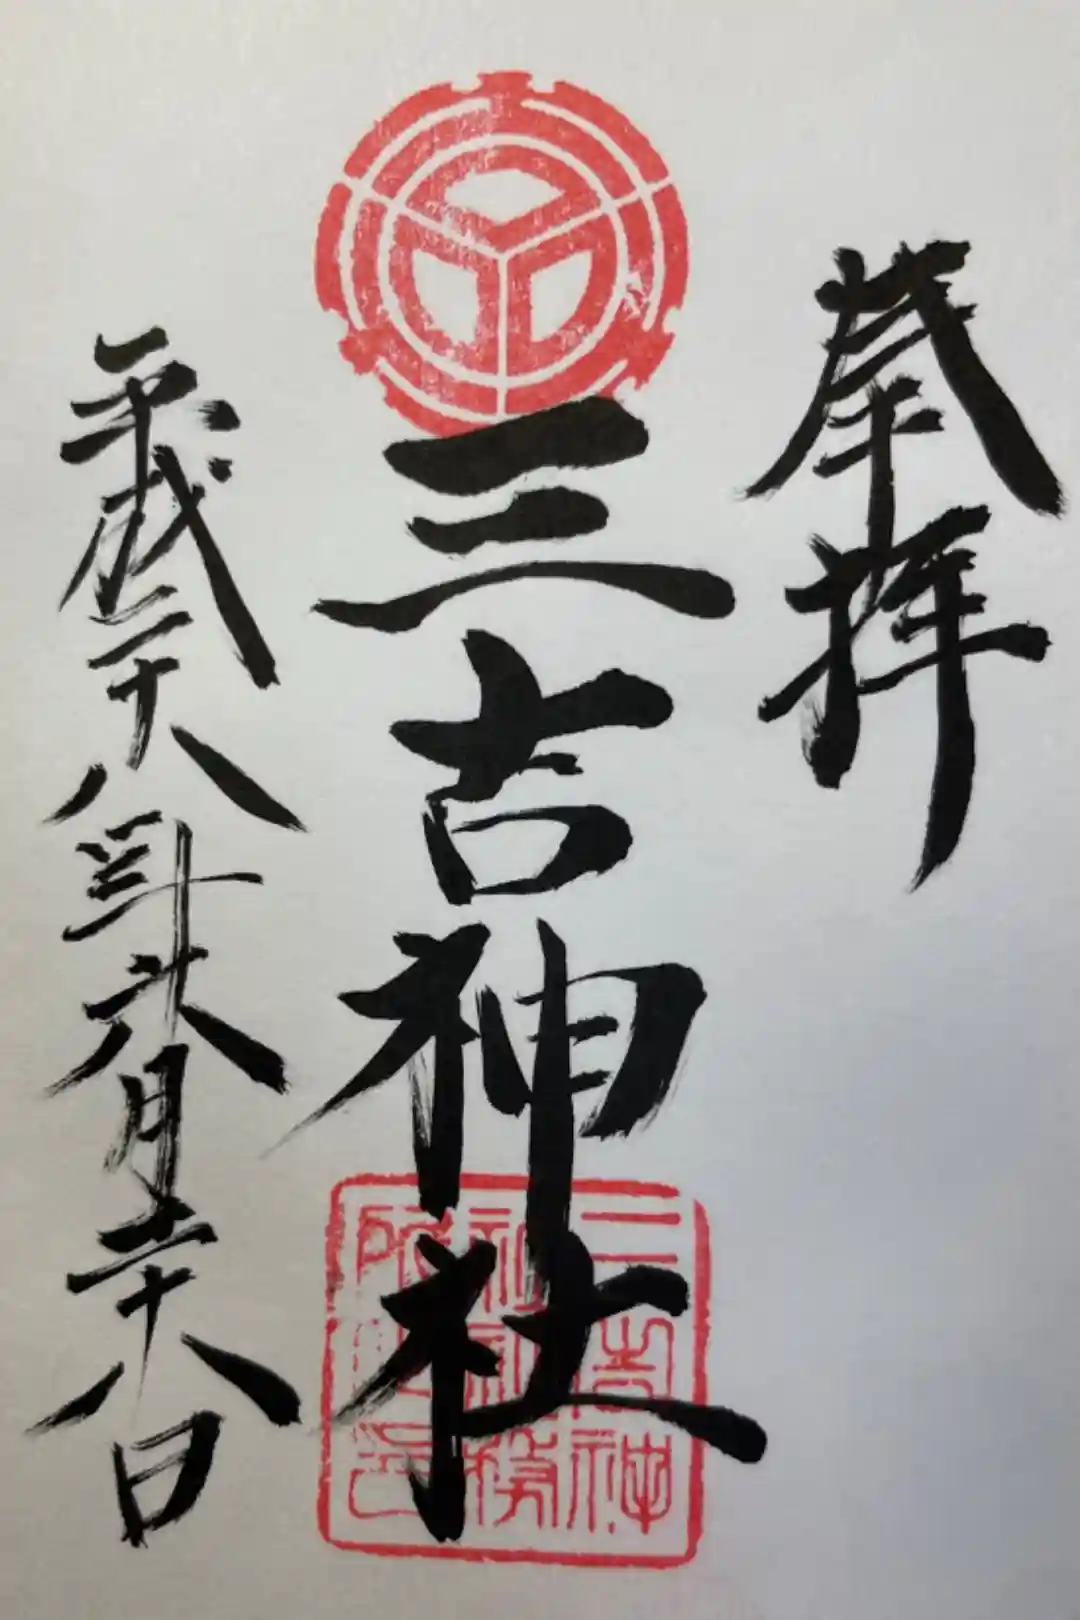 奉拝
三吉神社
平成二十八年六月二十八日
三吉神
社社務
所之印